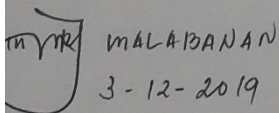 MALABANAN
3-12-2019